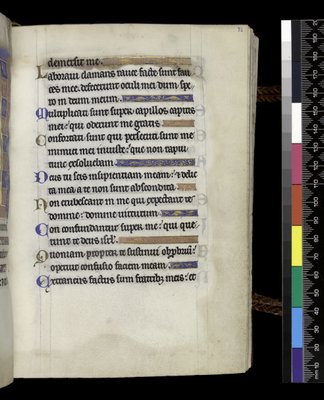 demersit me.
Laboraui clamans rauce facte sunt fau
ces mee. defecerunt oculi mei dum spe
ro in deum meum.
Multiplicati sunt super capillos capitis
mei: qui oderunt me gratis.
Confortati sunt qui persecuti sunt me
inimici mei iniuste: que non rapui
tunc exsoluebam.
Deus tu scis insipientiam meam: & delic
ta mea a te non sunt abscondita.
Non erubescant in me qui expectant te
domine: domine uirtutum.
Non confundantur super me: qui que
runt te deus isrl.
Quoniam propter te sustinui obprbrium:
operuit confusio faciem meam.
Extraneus factus sum fratribz meis: et